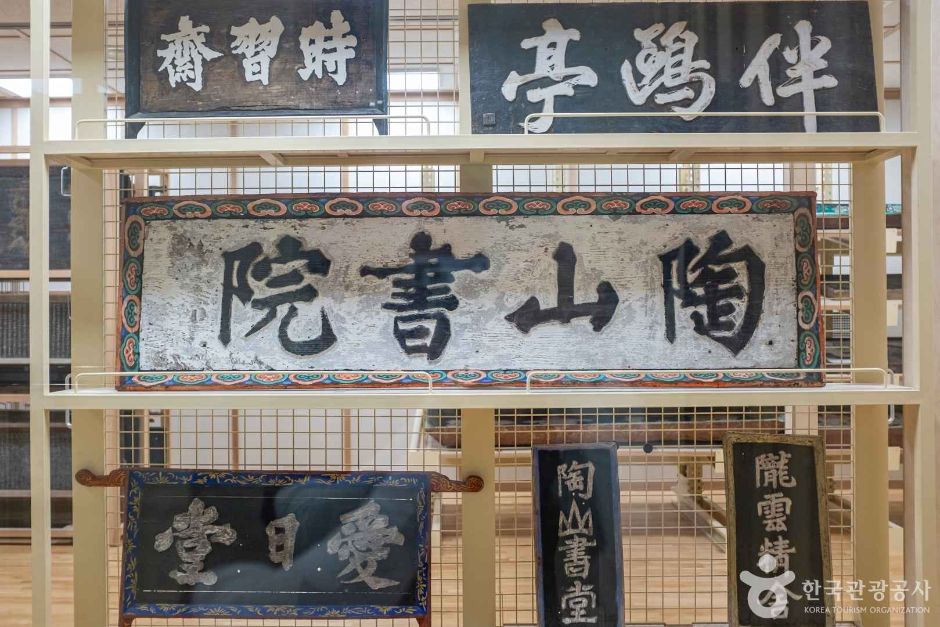 時習齋
伴鷗亭
陶山書院
愛日堂
陶山書堂
隴雲精舍
한국관광공사
KOREA TOURISM ORGANIZATION